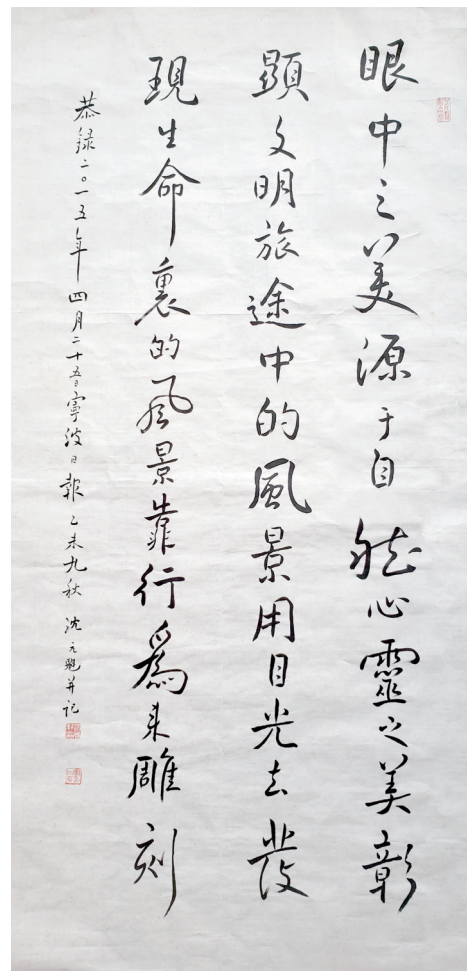 眼中之美源于自然心靈之美彰
顯文明旅途中的風景用目光去發
現生命裏的風景靠行爲來雕刻
恭録二〇一五年四月二十五日寧波日報乙未九秋沈元魁并記